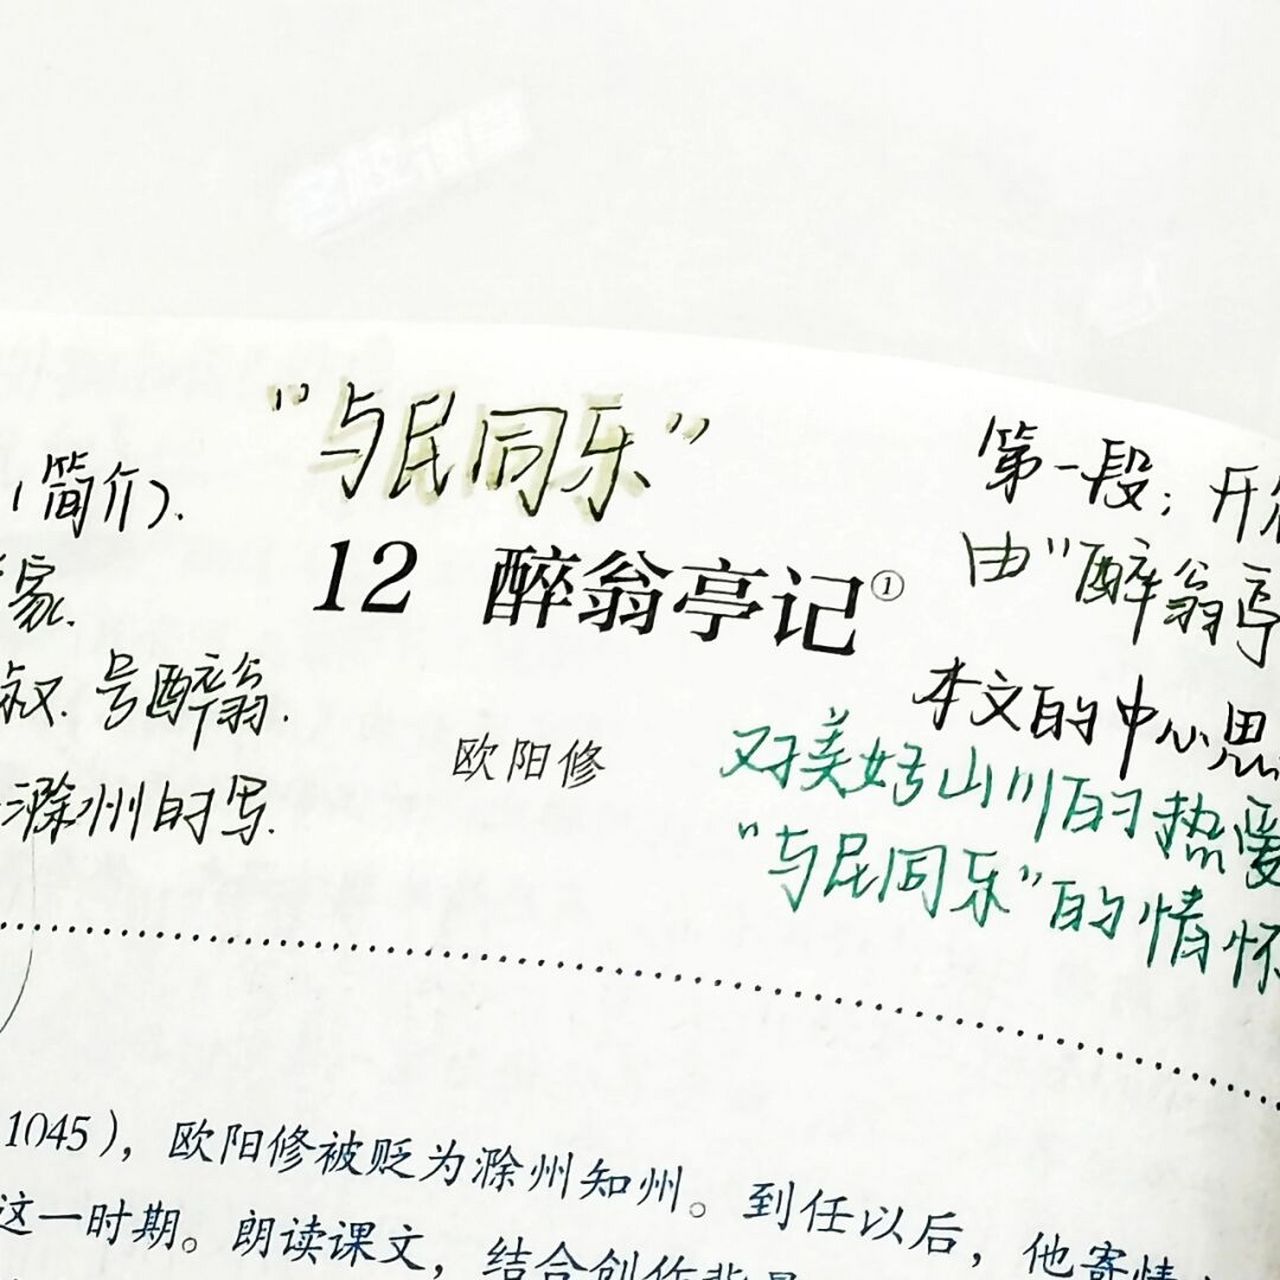 “与民同乐”
(简介).
家.
叔. 号醉翁.
滁州时写.
12 醉翁亭记①
欧阳修
第一段：开
由“醉翁亭
本文的中心思
对美好山川的热爱
“与民同乐”的情怀
1045），欧阳修被贬为滁州知州。到任以后，他寄情
这一时期。朗读课文，结合创作背景